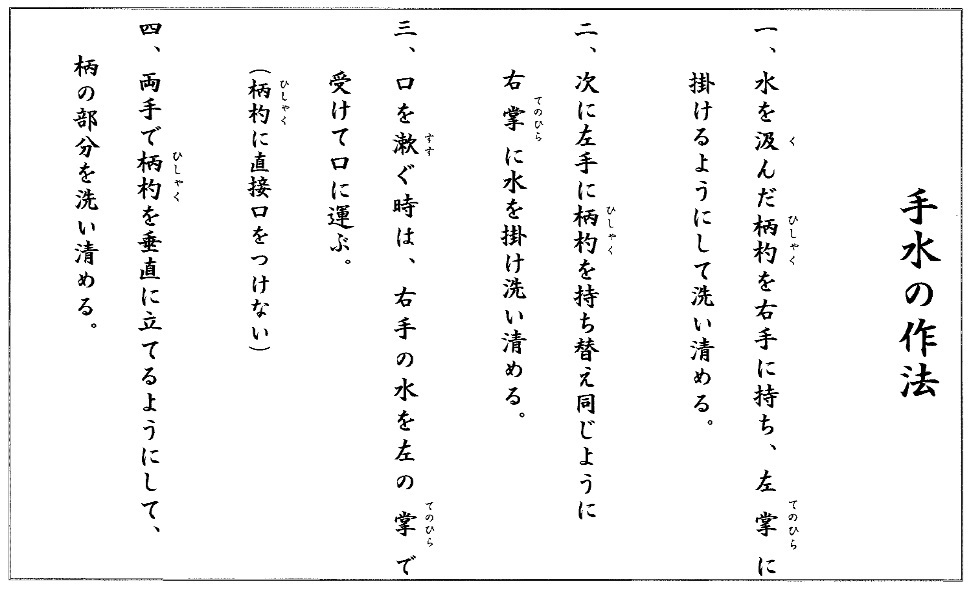 手水の作法
一、水を汲んだ柄杓を右手に持ち、左掌に
掛けるようにして洗い清める。
二、次に左手に柄杓を持ち替え同じように
右掌に水を掛け洗い清める。
三、口を漱ぐ時は、右手の水を左の掌で
受けて口に運ぶ。
（柄杓に直接口をつけない）
四、両手で柄杓を垂直に立てるようにして、
柄の部分を洗い清める。